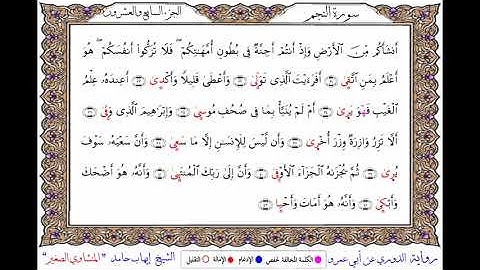 سورة النجم
الجزء السابع والعشرون
أَنشَأَكُم مِّنَ ٱلْأَرْضِ وَإِذْ أَنتُمْ أَجِنَّةٌ فِى بُطُونِ أُمَّهَٰتِكُمْ فَلَا تُزَكُّوٓا۟ أَنفُسَكُمْ هُوَ
أَعْلَمُ بِمَنِ ٱتَّقَىٰٓ أَفَرَءَيْتَ ٱلَّذِى تَوَلَّىٰ وَأَعْطَىٰ قَلِيلًا وَأَكْدَىٰٓ أَعِندَهُۥ عِلْمُ
ٱلْغَيْبِ فَهْوَ يَرَىٰٓ أَمْ لَمْ يُنَبَّأْ بِمَا فِى صُحُفِ مُوسَىٰ وَإِبْرَٰهِيمَ ٱلَّذِى وَفَّىٰٓ
أَلَّا تَزِرُ وَازِرَةٌ وِزْرَ أُخْرَىٰ وَأَن لَّيْسَ لِلْإِنسَٰنِ إِلَّا مَا سَعَىٰ وَأَنَّ سَعْيَهُۥ سَوْفَ
يُرَىٰ ثُمَّ يُجْزَىٰهُ ٱلْجَزَآءَ ٱلْأَوْفَىٰ وَأَنَّ إِلَىٰ رَبِّكَ ٱلْمُنتَهَىٰ وَأَنَّهُۥ هُوَ أَضْحَكَ
وَأَبْكَىٰ وَأَنَّهُۥ هُوَ أَمَاتَ وَأَحْيَا
رواية الدوري عن أبي عمرو الكلمة المخالفة لحفص الإدغام الإمالة التقليل الشيخ إيهاب حامد "المنشاوي الصغير"